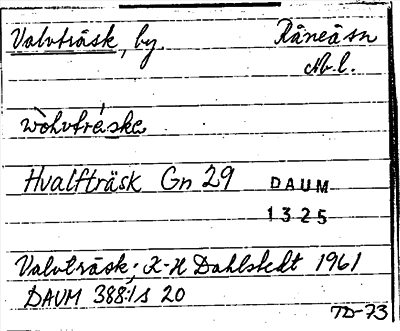 Valvträsk, by. Råneå sn
Nb. l.
wòhvtráske
Hvalfträsk Gn 29 DAUM
1325
Valvträsk; K-H Dahlstedt 1961
DAUM 388:1 s 20
TD-73